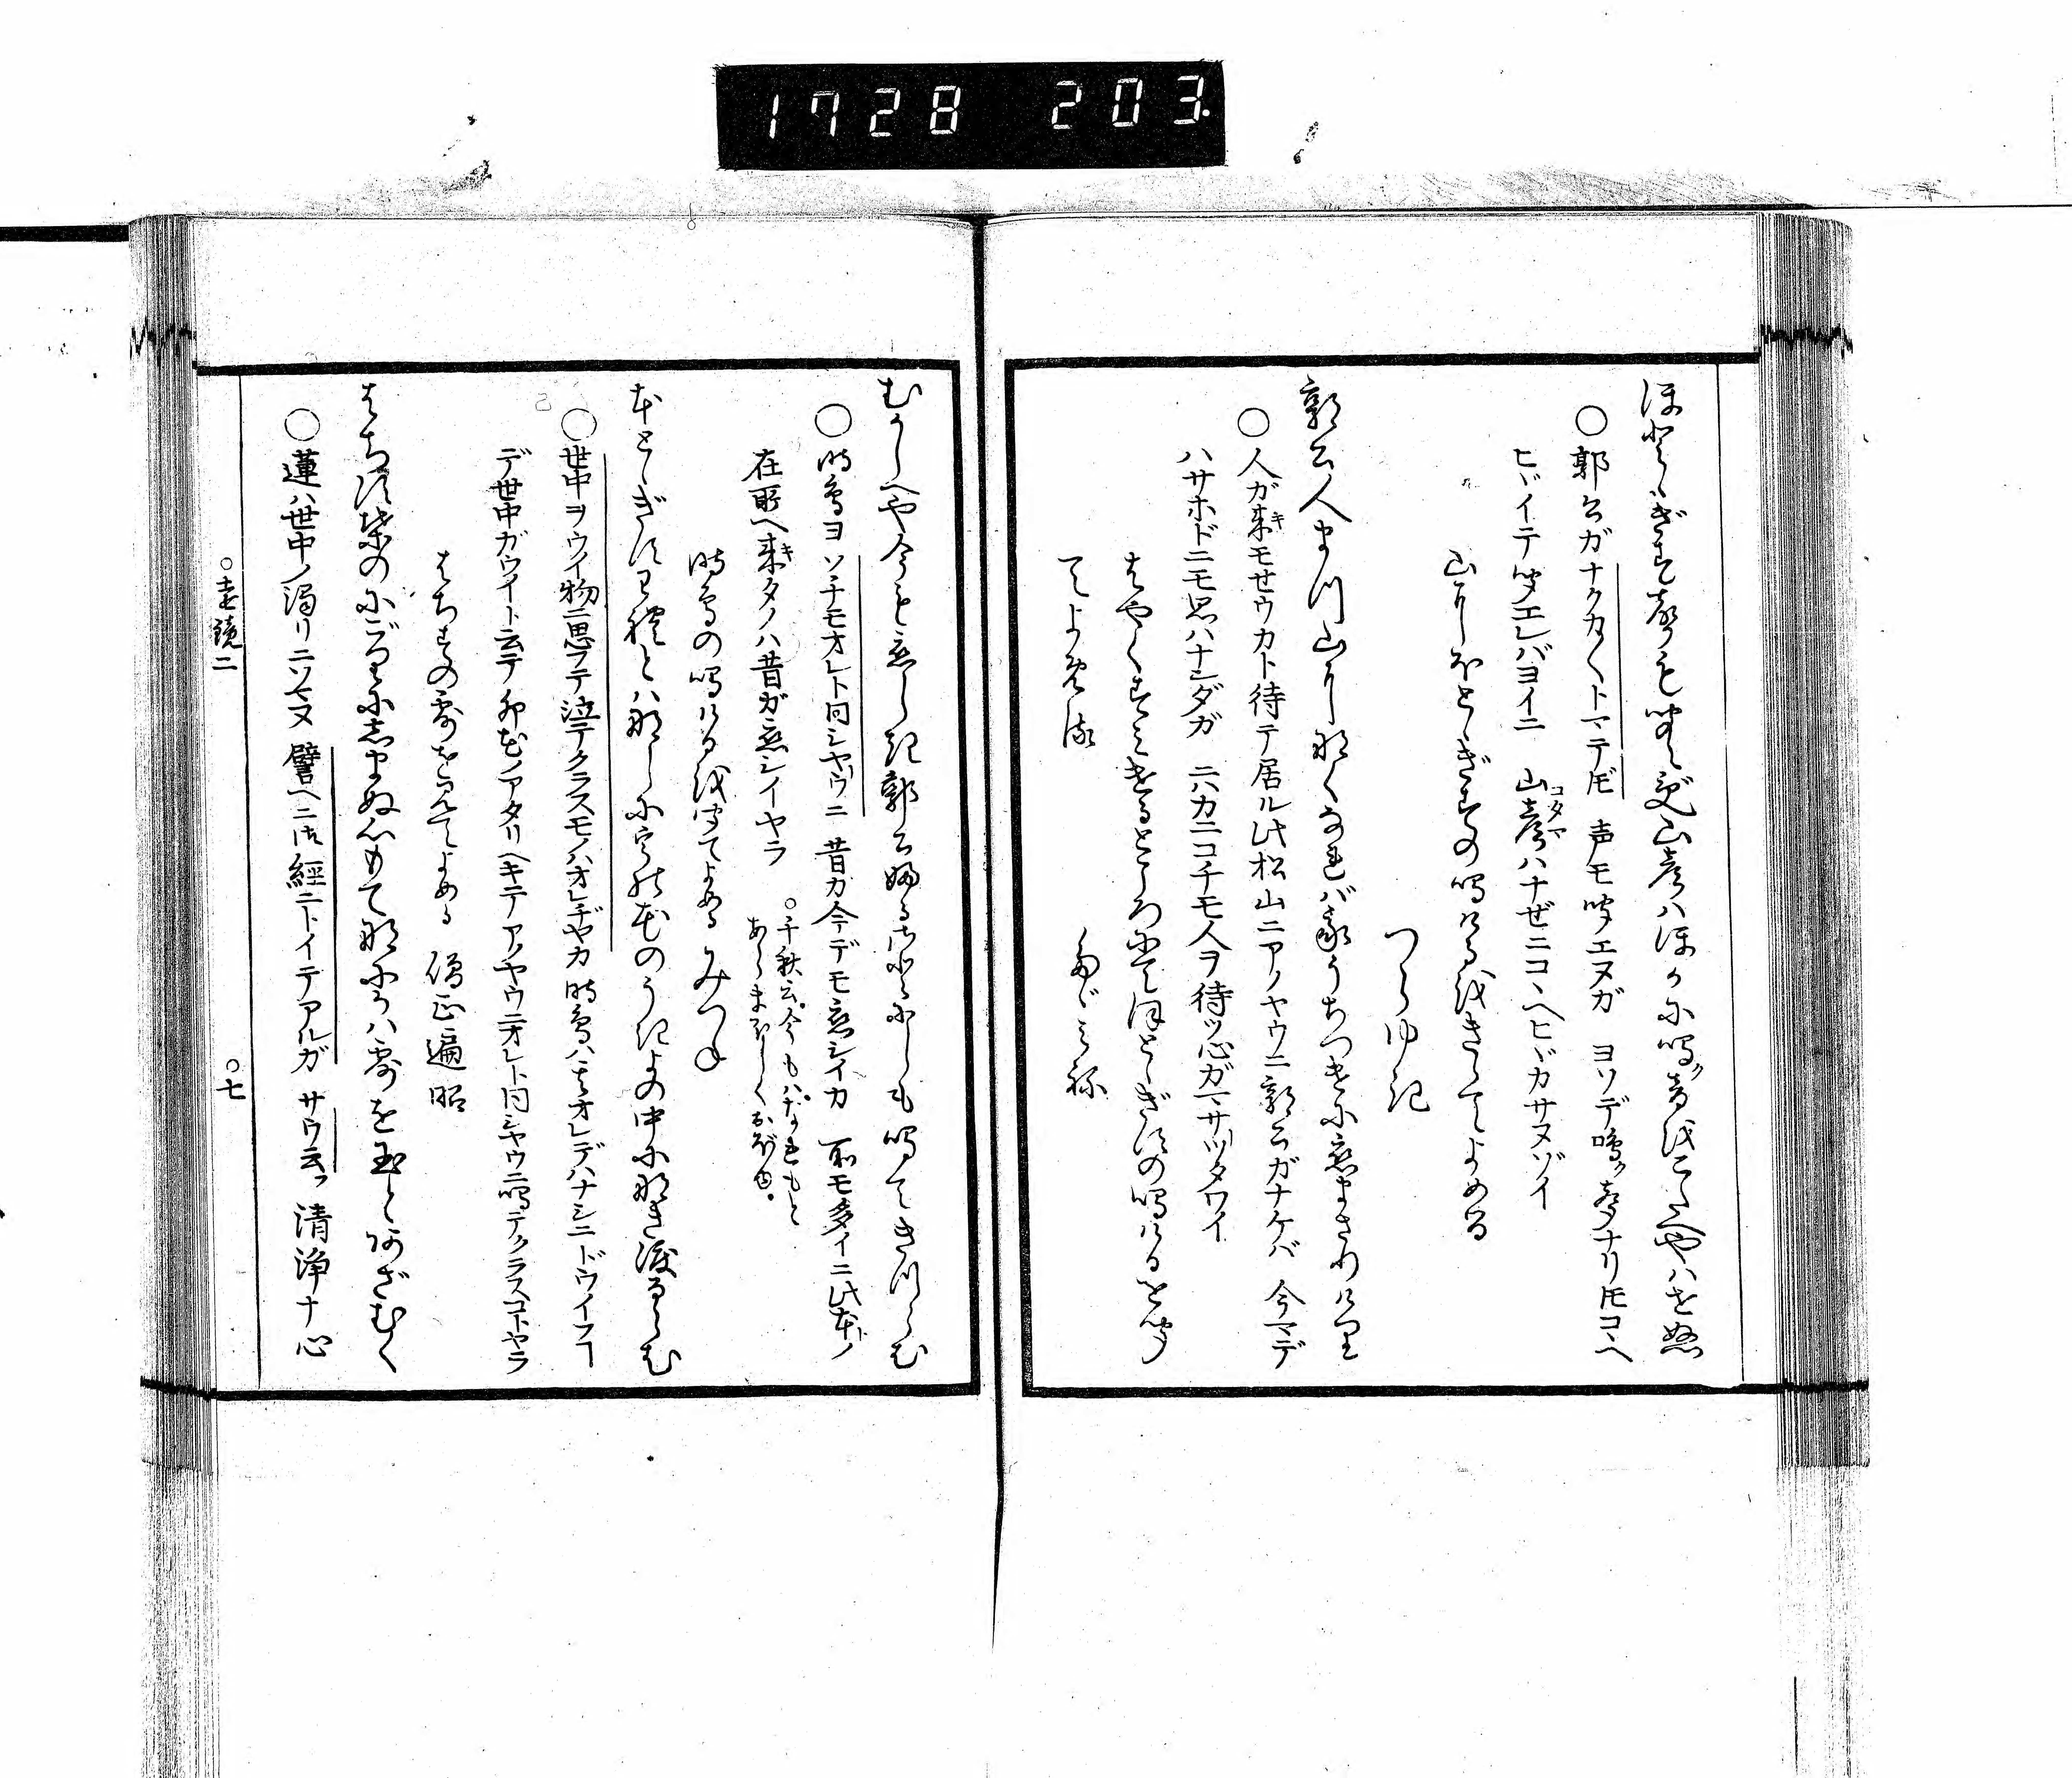 1728 203
ほとゝぎす声も聞えず山彦ハほかに鳴ク音をこたへやハせぬ
○郭公ガナクカ〱トマテドモ 声モ聞エヌガ ヨソデ鳴ク声ナリトモコヽヘ
ヒヾイテ聞エレバヨイニ 山彦(コダマ)ハナゼニコヽヘヒヾカサヌゾイ
山にほとゝぎすの鳴けるをきゝてよめる
つらゆき
郭公人まつ山に鳴くなれば我うちつけに恋まさりけり
○人ガ来(キ)モセウカト待テ居ル此松山ニアノヤウニ郭公ガナケバ 今マデ
ハサホドニモ思ハナンダガ ニハカニコチモ人ヲ待ツ心ガマサツタワイ
はやくすみけるところにてほとゝぎすの鳴けるを聞
てよめる
たゞみね
むかしへや今も恋しき郭公故さとにしも鳴てきつらむ
○時鳥ヨ ソチモオレト同シヤウニ 昔カ今デモ恋シイカ 所モ多イニ此本トノ
在所ヘ来(キ)タノハ昔ガ恋シイヤラ
○千秋云。今もハ。なれもと
あらまほしくおぼゆ。
時鳥の鳴ける を聞てよめる みつね
ほとゝぎす我とハなしに卯花のうき世の中に鳴き渡るらむ
○世中ヲウイ物ニ思フテ泣テクラスモノハオレヂヤカ 時鳥ハオレデハナシニ ドウイフコトデ
世中ガウイト云テ 卯花ノアタリヘキテ アノヤウニオレト同シヤウニ鳴テクラスコトヤラ
はちすの露をみてよめる 僧正遍昭
はちす葉のにごりに志まぬ心もて何かハ露を玉とあざむく
○蓮ハ世中ノ濁リニソマヌ 譬ヘニ法経ニトイテアルガ サウ云フ 清浄ナ心
○遠鏡二
○七